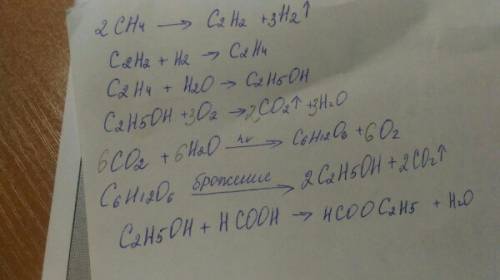 2 CH4 → C2H2 + 3H2↑
C2H2 + H2 → C2H4
C2H4 + H2O → C2H5OH
C2H5OH + 3O2 → 2CO2↑ + 3H2O
6CO2 + 6H2O hν → C6H12O6 + 6O2
C6H12O6 брожение → 2C2H5OH + 2CO2↑
C2H5OH + HCOOH → HCOOC2H5 + H2O